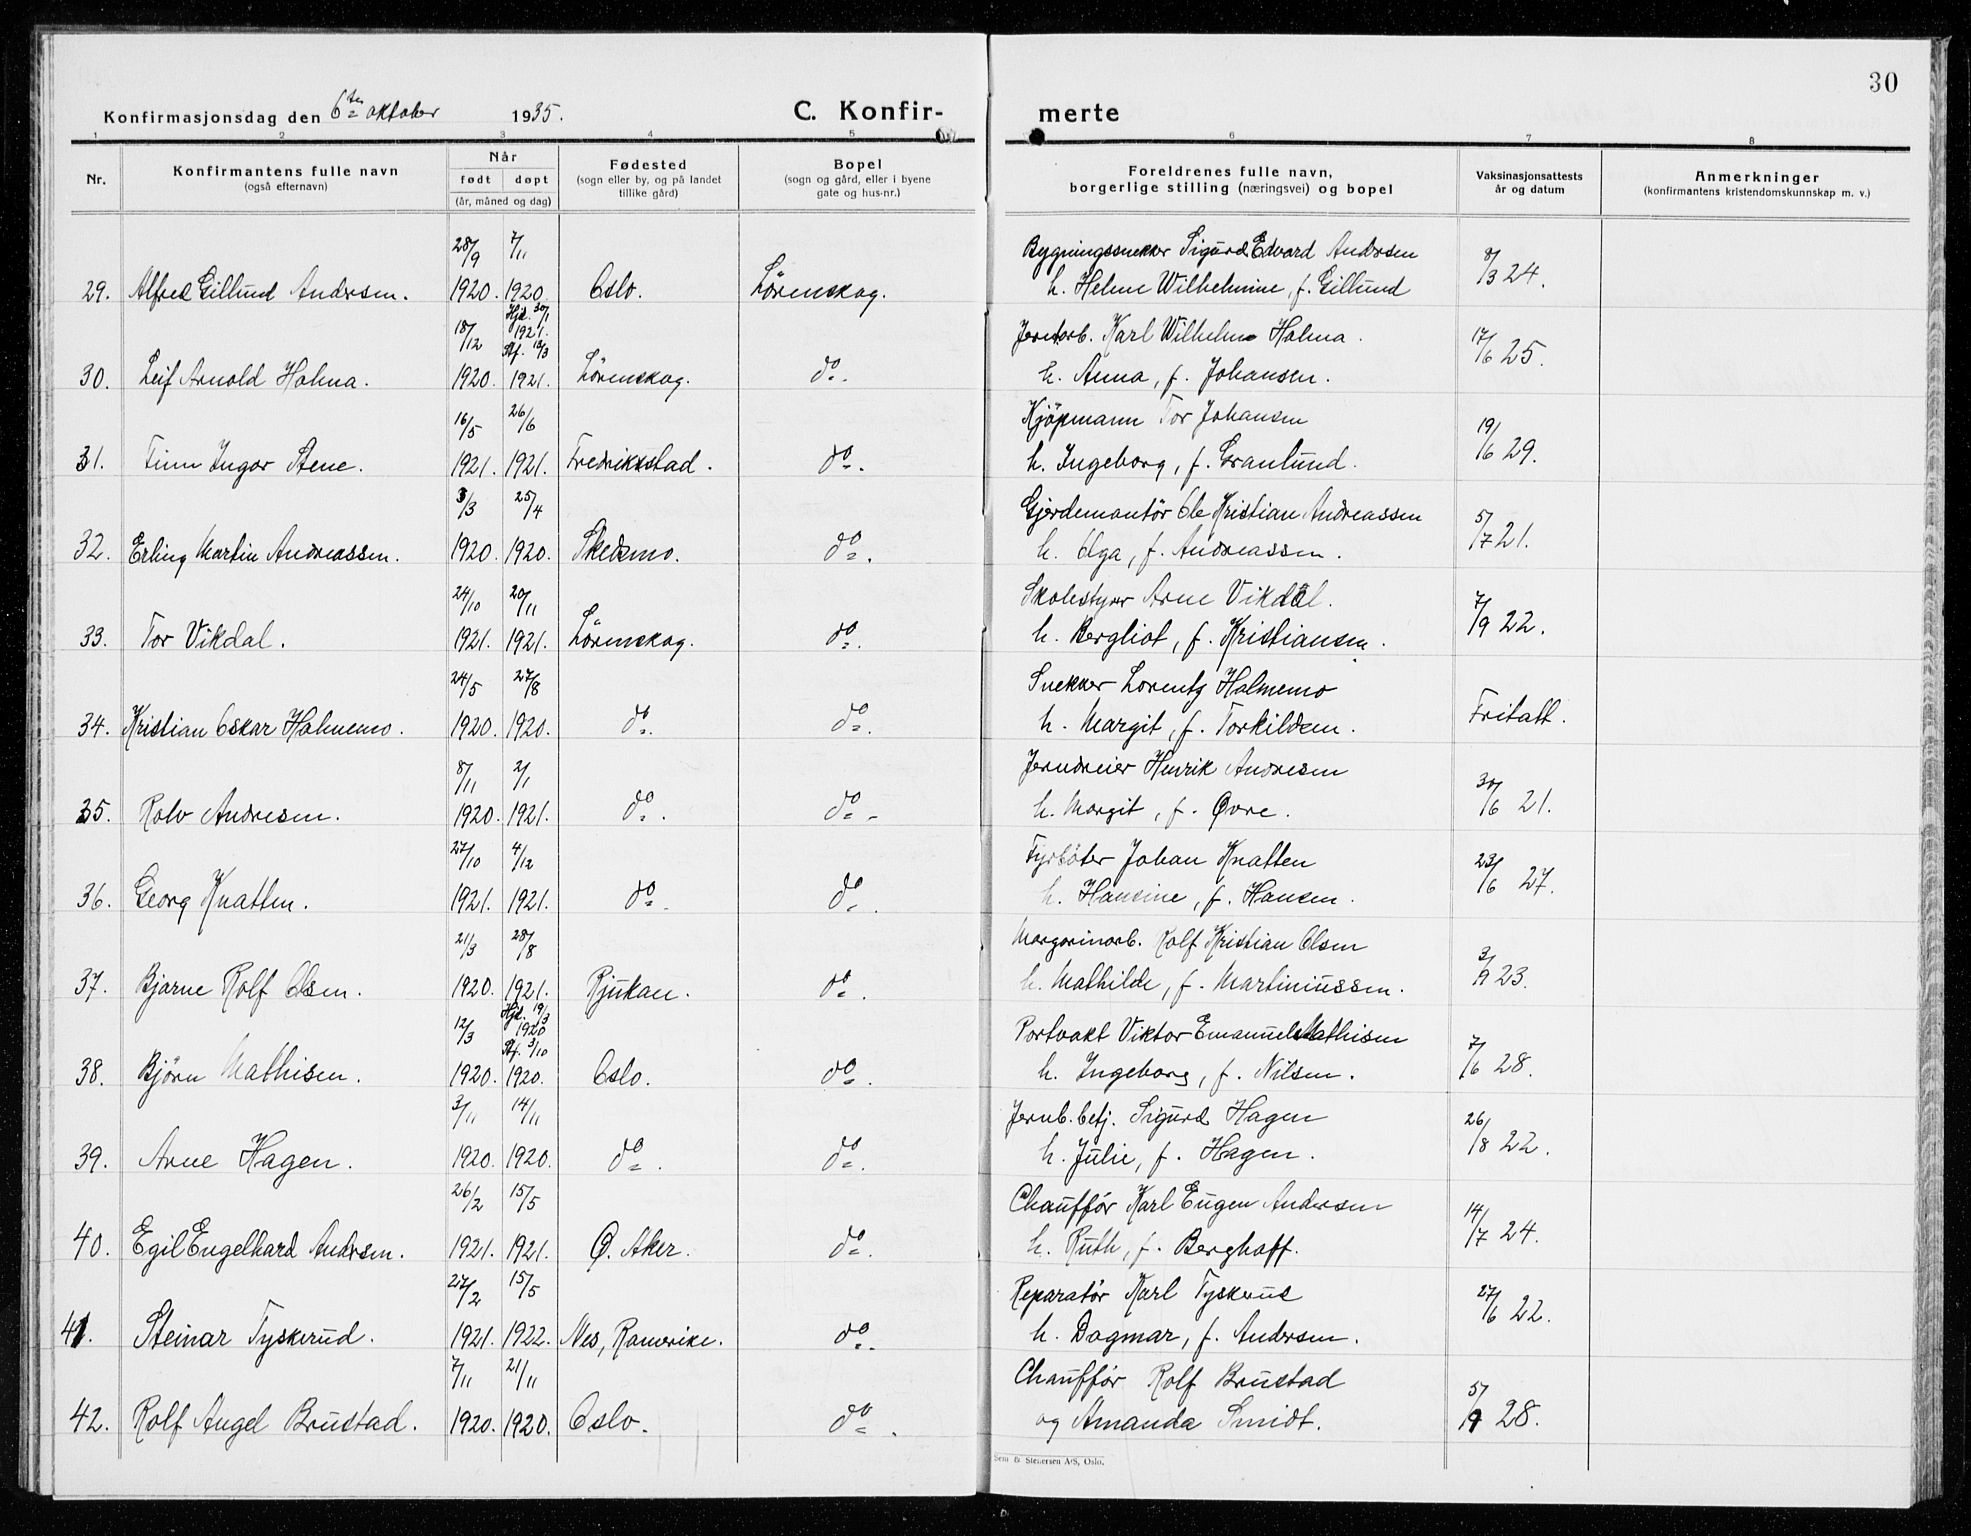 30
Konfirmasjonsdag den 6te oktober 1935. C. Konfir- merte
1 2 3 4 5 6 7 8
Nr. Konfirmantens fulle navn (også efternavn) Når født døpt (år, måned og dag) Fødested (sogn eller by, og på landet tillike gård) Bopel (sogn og gård, eller i byene gate og hus-nr.) Foreldrenes fulle navn, borgerlige stilling (næringsvei) og bopel Vaksinasjonsattests år og datum Anmerkninger (konfirmantens kristendomskunnskap m. v.)
28/9 7/11 Bygningssnekker Sigurd Edvard Andersen 8/3 24.
29. Alfred Gillund Andersen. 1920. 1920. Oslo. Lörenskog. h. Helene Wilhelmine, f. Gillund
18/12 Hjd. 30/1 1921. Stf. 13/3 Jernarb. Karl Wilhelm Holma. 17/6 25.
30. Leif Arnold Holma. 1920. 1921. Lörenskog. do. h. Anna, f. Johansen.
16/5 26/6 Kjöpmann Tor Johansen 19/6 29.
31. Finn Ingar Stene. 1921. 1921. Fredrikstad. do. h. Ingeborg, f. Granlund.
3/3 25/4 Gjerdemontör Ole Kristian Andreassen 5/7 21.
32. Erling Martin Andreassen. 1920. 1920. Skedsmo. do. h. Olga, f. Andreassen.
24/10 20/11 Skolestyrer Arne Vikdal. 7/9 22.
33. Tor Vikdal. 1921. 1921. Lörenskog. do. h. Bergliot, f. Kristiansen.
24/5 27/8 Snekker Lorentz Holmemo Fritatt.
34. Kristian Oskar Holmemo. 1920. 1920. do. do. h. Margit, f. Torkildsen.
8/11 2/1 Jerndreier Henrik Andresen 30/6 21.
35. Rolv Andresen. 1920. 1921. do. do. h. Margit, f. Øvre.
27/10 4/12 Fyrböter Johan Knatten 23/6 27.
36. Georg Knatten. 1921. 1921. do. do. h. Hansine, f. Hansen.
21/3 28/8 Margarinarb. Rolf Kristian Olsen 3/9 23.
37. Bjarne Rolf Olsen. 1920. 1921. Rjukan. do. h. Mathilde, f. Martiniussen.
12/3 Hjd. 19/3 1920 Stf. 3/10 Portvakt Viktor Emanuel Mathisen 7/6 28.
38. Björn Mathisen. 1920. 1920. Oslo. do. h. Ingeborg, f. Nilsen.
3/11 14/11 Jernb.betj. Sigurd Hagen 26/8 22.
39. Arne Hagen. 1920. 1920. do. do. h. Julie, f. Hagen.
26/2 15/5 Chaufför Karl Eugen Andersen 14/7 24.
40. Egil Engelhard Andersen. 1921. 1921. Ø. Aker. do. h. Ruth, f. Berghoff.
27/2 15/5 Reparatör Karl Tyskerud 27/6 22.
41. Steinar Tyskerud. 1921. 1922. Nes, Romerike. do. h. Dagmar, f. Andersen.
7/11 21/11 Chaufför Rolf Brustad 5/9 28.
42. Rolf Angel Brustad. 1920. 1920. Oslo. do. og Amanda Smidt.
Sem & Stenersen A/S, Oslo.